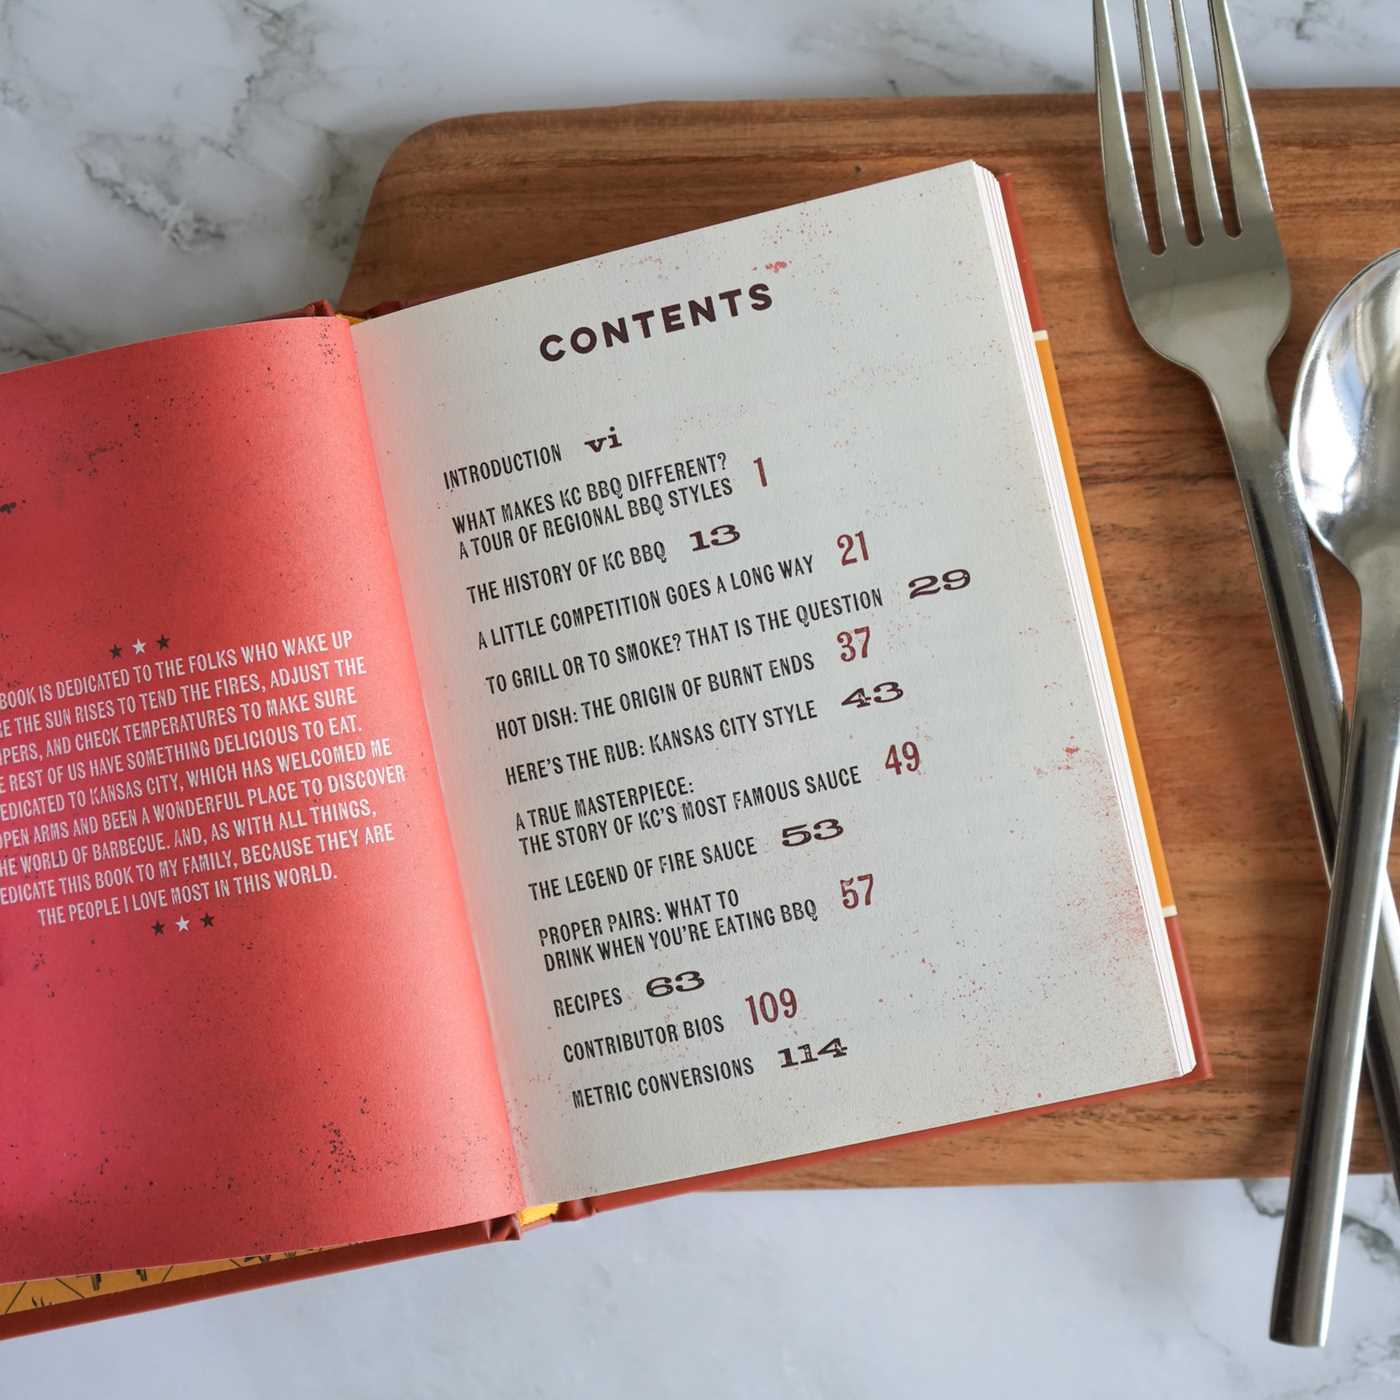 BOOK IS DEDICATED TO THE FOLKS WHO WAKE UP
THE SUN RISES TO TEND THE FIRES, ADJUST THE
AND CHECK TEMPERATURES TO MAKE SURE
REST OF US HAVE SOMETHING DELICIOUS TO EAT.
TO KANSAS CITY, WHICH HAS WELCOMED ME
OPEN ARMS AND BEEN A WONDERFUL PLACE TO DISCOVER
WORLD OF BARBECUE. AND, AS WITH ALL THINGS,
THIS BOOK TO MY FAMILY, BECAUSE THEY ARE
THE PEOPLE I LOVE MOST IN THIS WORLD.
CONTENTS
INTRODUCTION vi
WHAT MAKES KC BBQ DIFFERENT?
A TOUR OF REGIONAL BBQ STYLES 1
THE HISTORY OF KC BBQ 13
A LITTLE COMPETITION GOES A LONG WAY 21
TO GRILL OR TO SMOKE? THAT IS THE QUESTION 29
HOT DISH: THE ORIGIN OF BURNT ENDS 37
HERE'S THE RUB: KANSAS CITY STYLE 43
A TRUE MASTERPIECE:
THE STORY OF KC'S MOST FAMOUS SAUCE 49
THE LEGEND OF FIRE SAUCE 53
PROPER PAIRS: WHAT TO
DRINK WHEN YOU'RE EATING BBQ 57
RECIPES 63
CONTRIBUTOR BIOS 109
METRIC CONVERSIONS 114